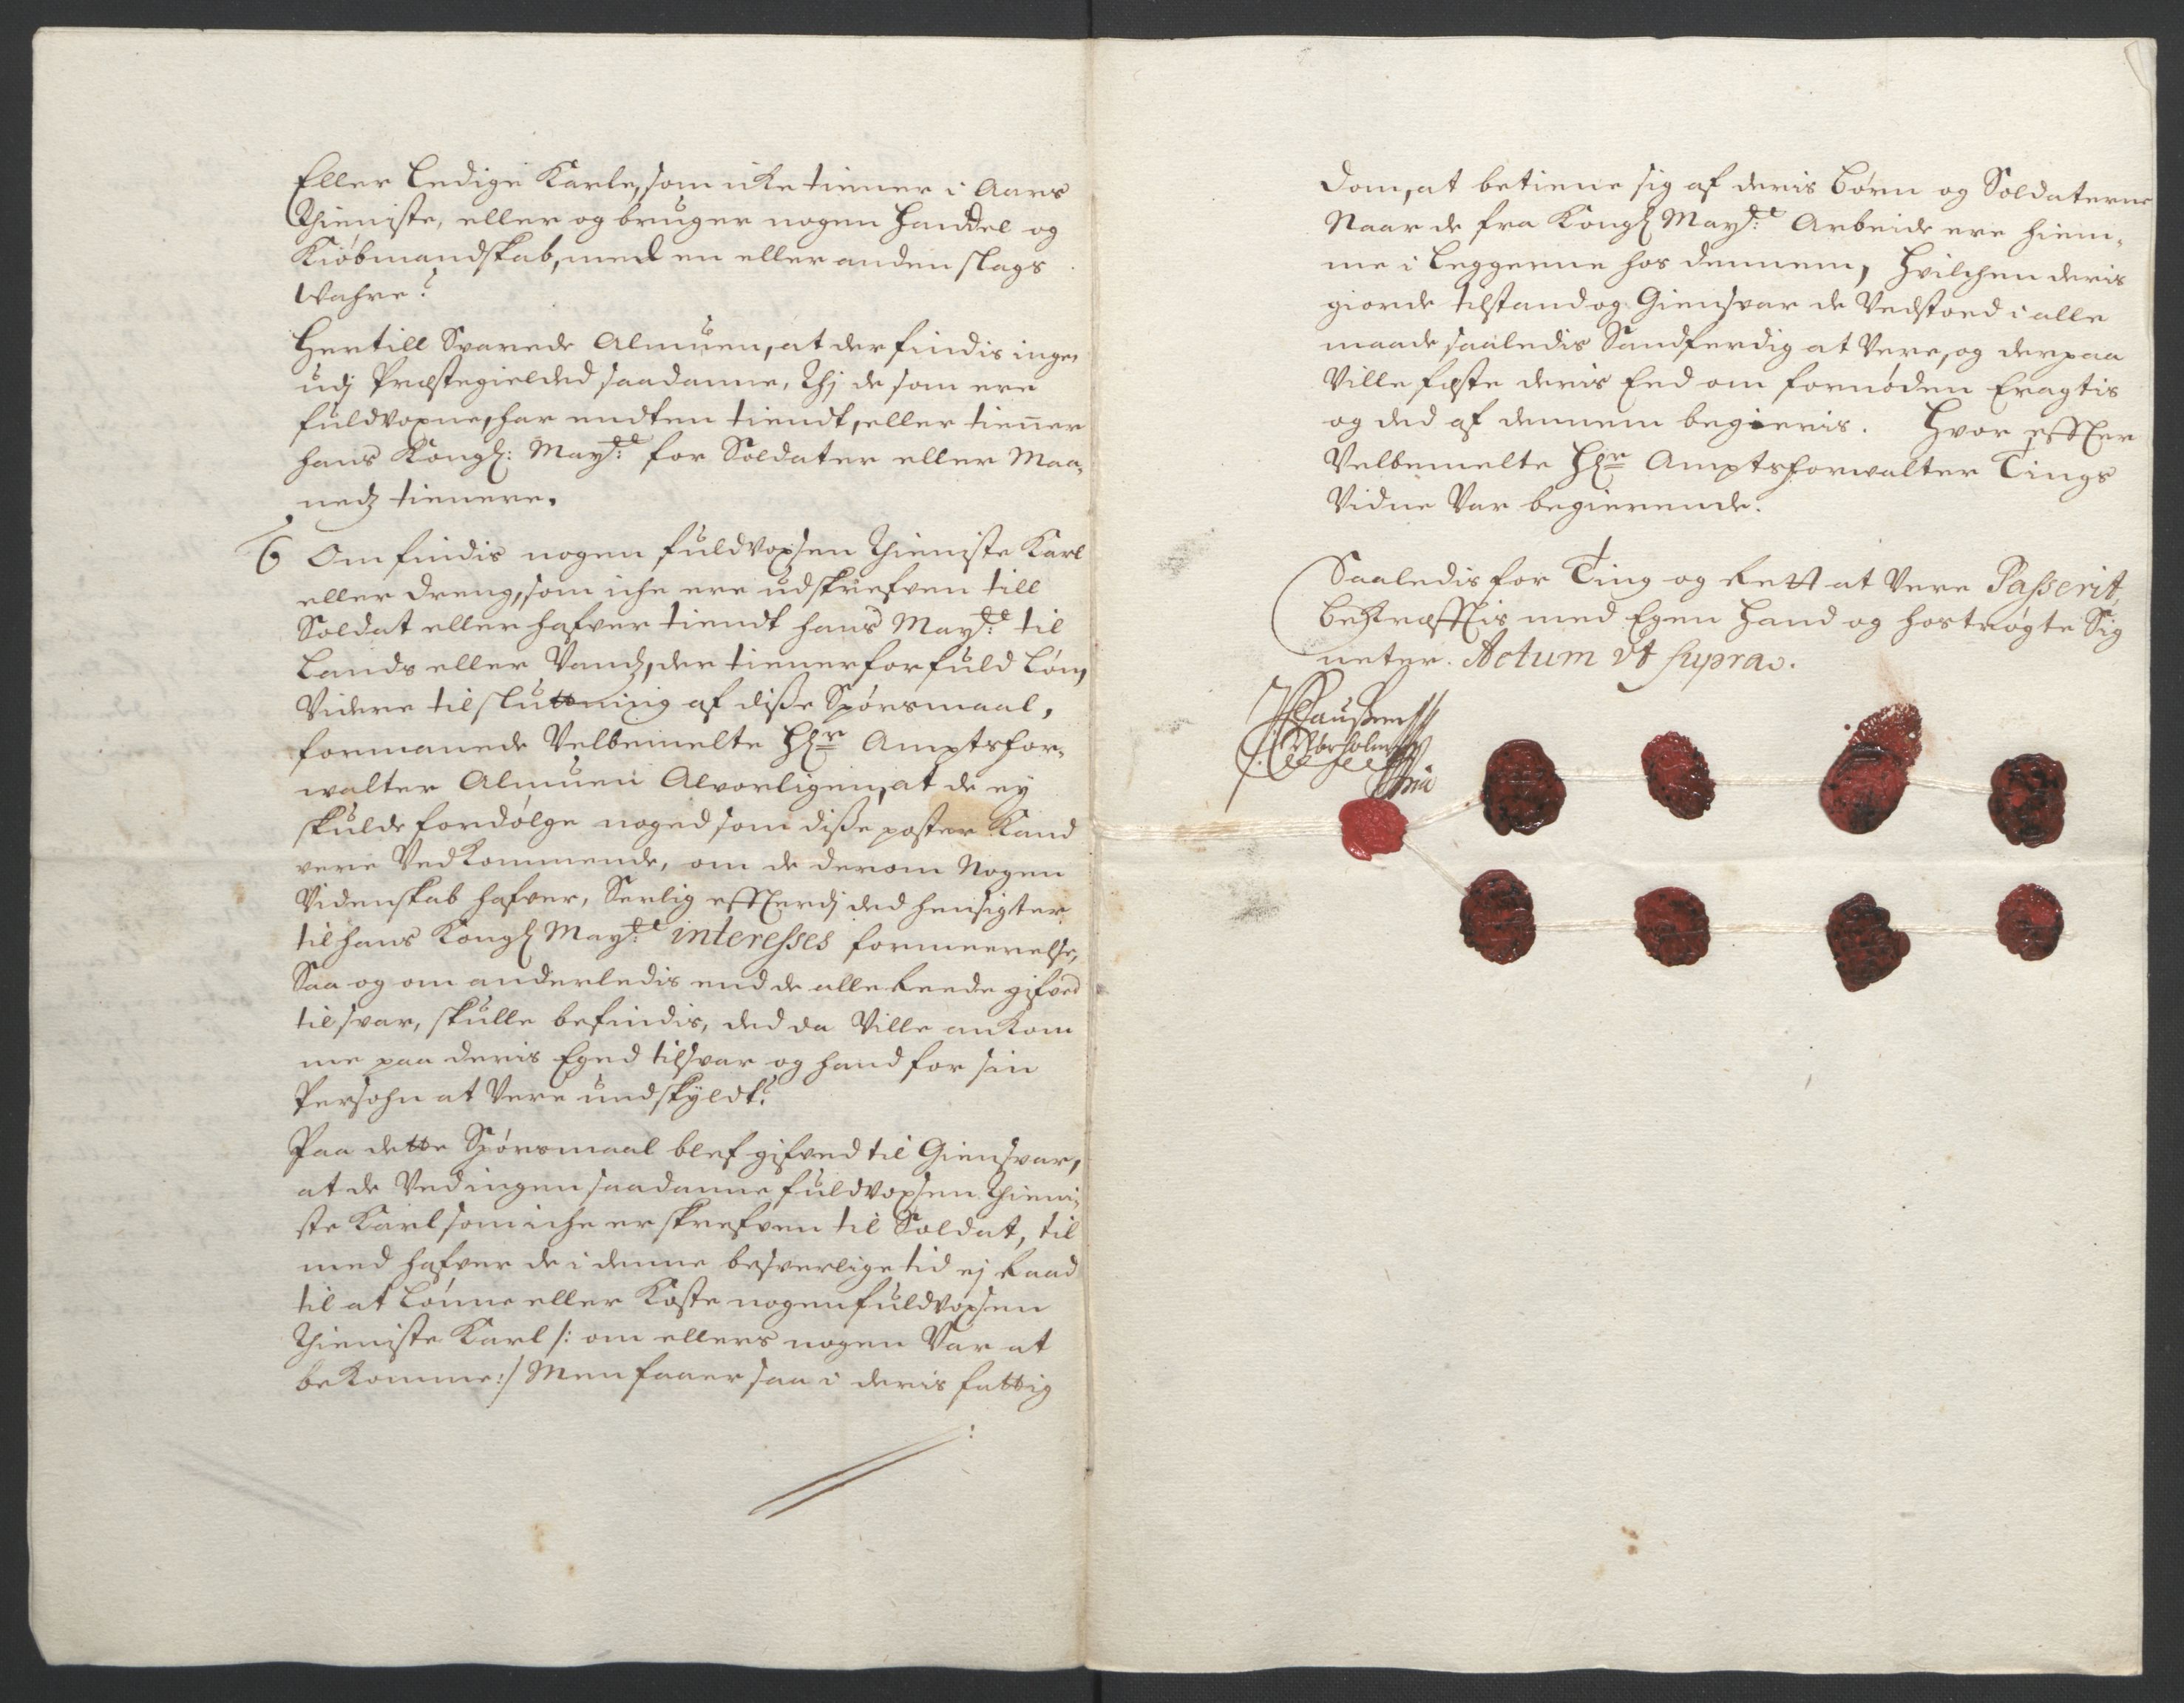 Eller Ledige Karle, som icke tiener i Aars
Thieniste, eller og bruger nogen Handel og
Kiöbmandskab, med en eller anden slags
Wahre?
Hertill Svarede Almuen, at der findis ingen
udj Præstegielded saadanne, Thj de som ere
fuldvoxne, har endten tiendt, eller tienner
hans Kongl: Mayt: for Soldater eller Maa-
nedz tienere.
6 Om findis nogen fuldvoxsen Thieniste Karl
eller dreng, som iche ere udskrefven till
Soldat eller hafver tiendt hans Mayt: til
Lands eller Vandz, der tiener for fuld Lön,
Videre til sluttning af disse Spörsmaal,
formanede Velbemelte Hr Amptsfor-
walter Almuen Alvorligen, at de ey
skulde fordölge noged som disse poster Kand
vere Vedkommende, om de derom Nogen
Videnskab hafver, Serlig effterdj ded hensigter
til hans Kongl Mayt: interesses formeerelse,
Saa og om anderledis end de allereede gifved
tilsvar, skulle befindis, ded da Ville ankom
me paa deris Eged tilsvar og hand for sin
Persohn at Vere undskyldt?
Paa dette Spörsmaal blef gifved til Giensvar,
at de Ved ingen saadanne fuldvoxsen Thieni-
ste Karl som iche er skrefven til Soldat, til
med hafver de i denne besverlige tid ej Raad
til at Lönne eller Koste nogen fuldvoxsen
Thieniste Karl /: om ellers nogen Var at
bekomme :/ Men faaer saa i deris fattig
dom, at betiene sig af deris Börn og Soldaterne
Naar de fra Kongl Mayt: Arbeide ere hiem-
me i Leggerne hos dennem, Hvilchen deris
giorde tilstand og Giensvar de Vedstoed i alle
maade saaledis Sandferdig at Vere, og derpaa
Ville feste deris Eed om fornöden Eragtis
og ded af dennem begieris. Hvor effter
Velbemelte Hr Amptsforwalter Tings
Vidne Var begierende.
Saaledis for Ting og Rett at Vere Passerit,
bekræfftis med Egen Hand og hoströgte Sig
neter. Actum Ut supra.